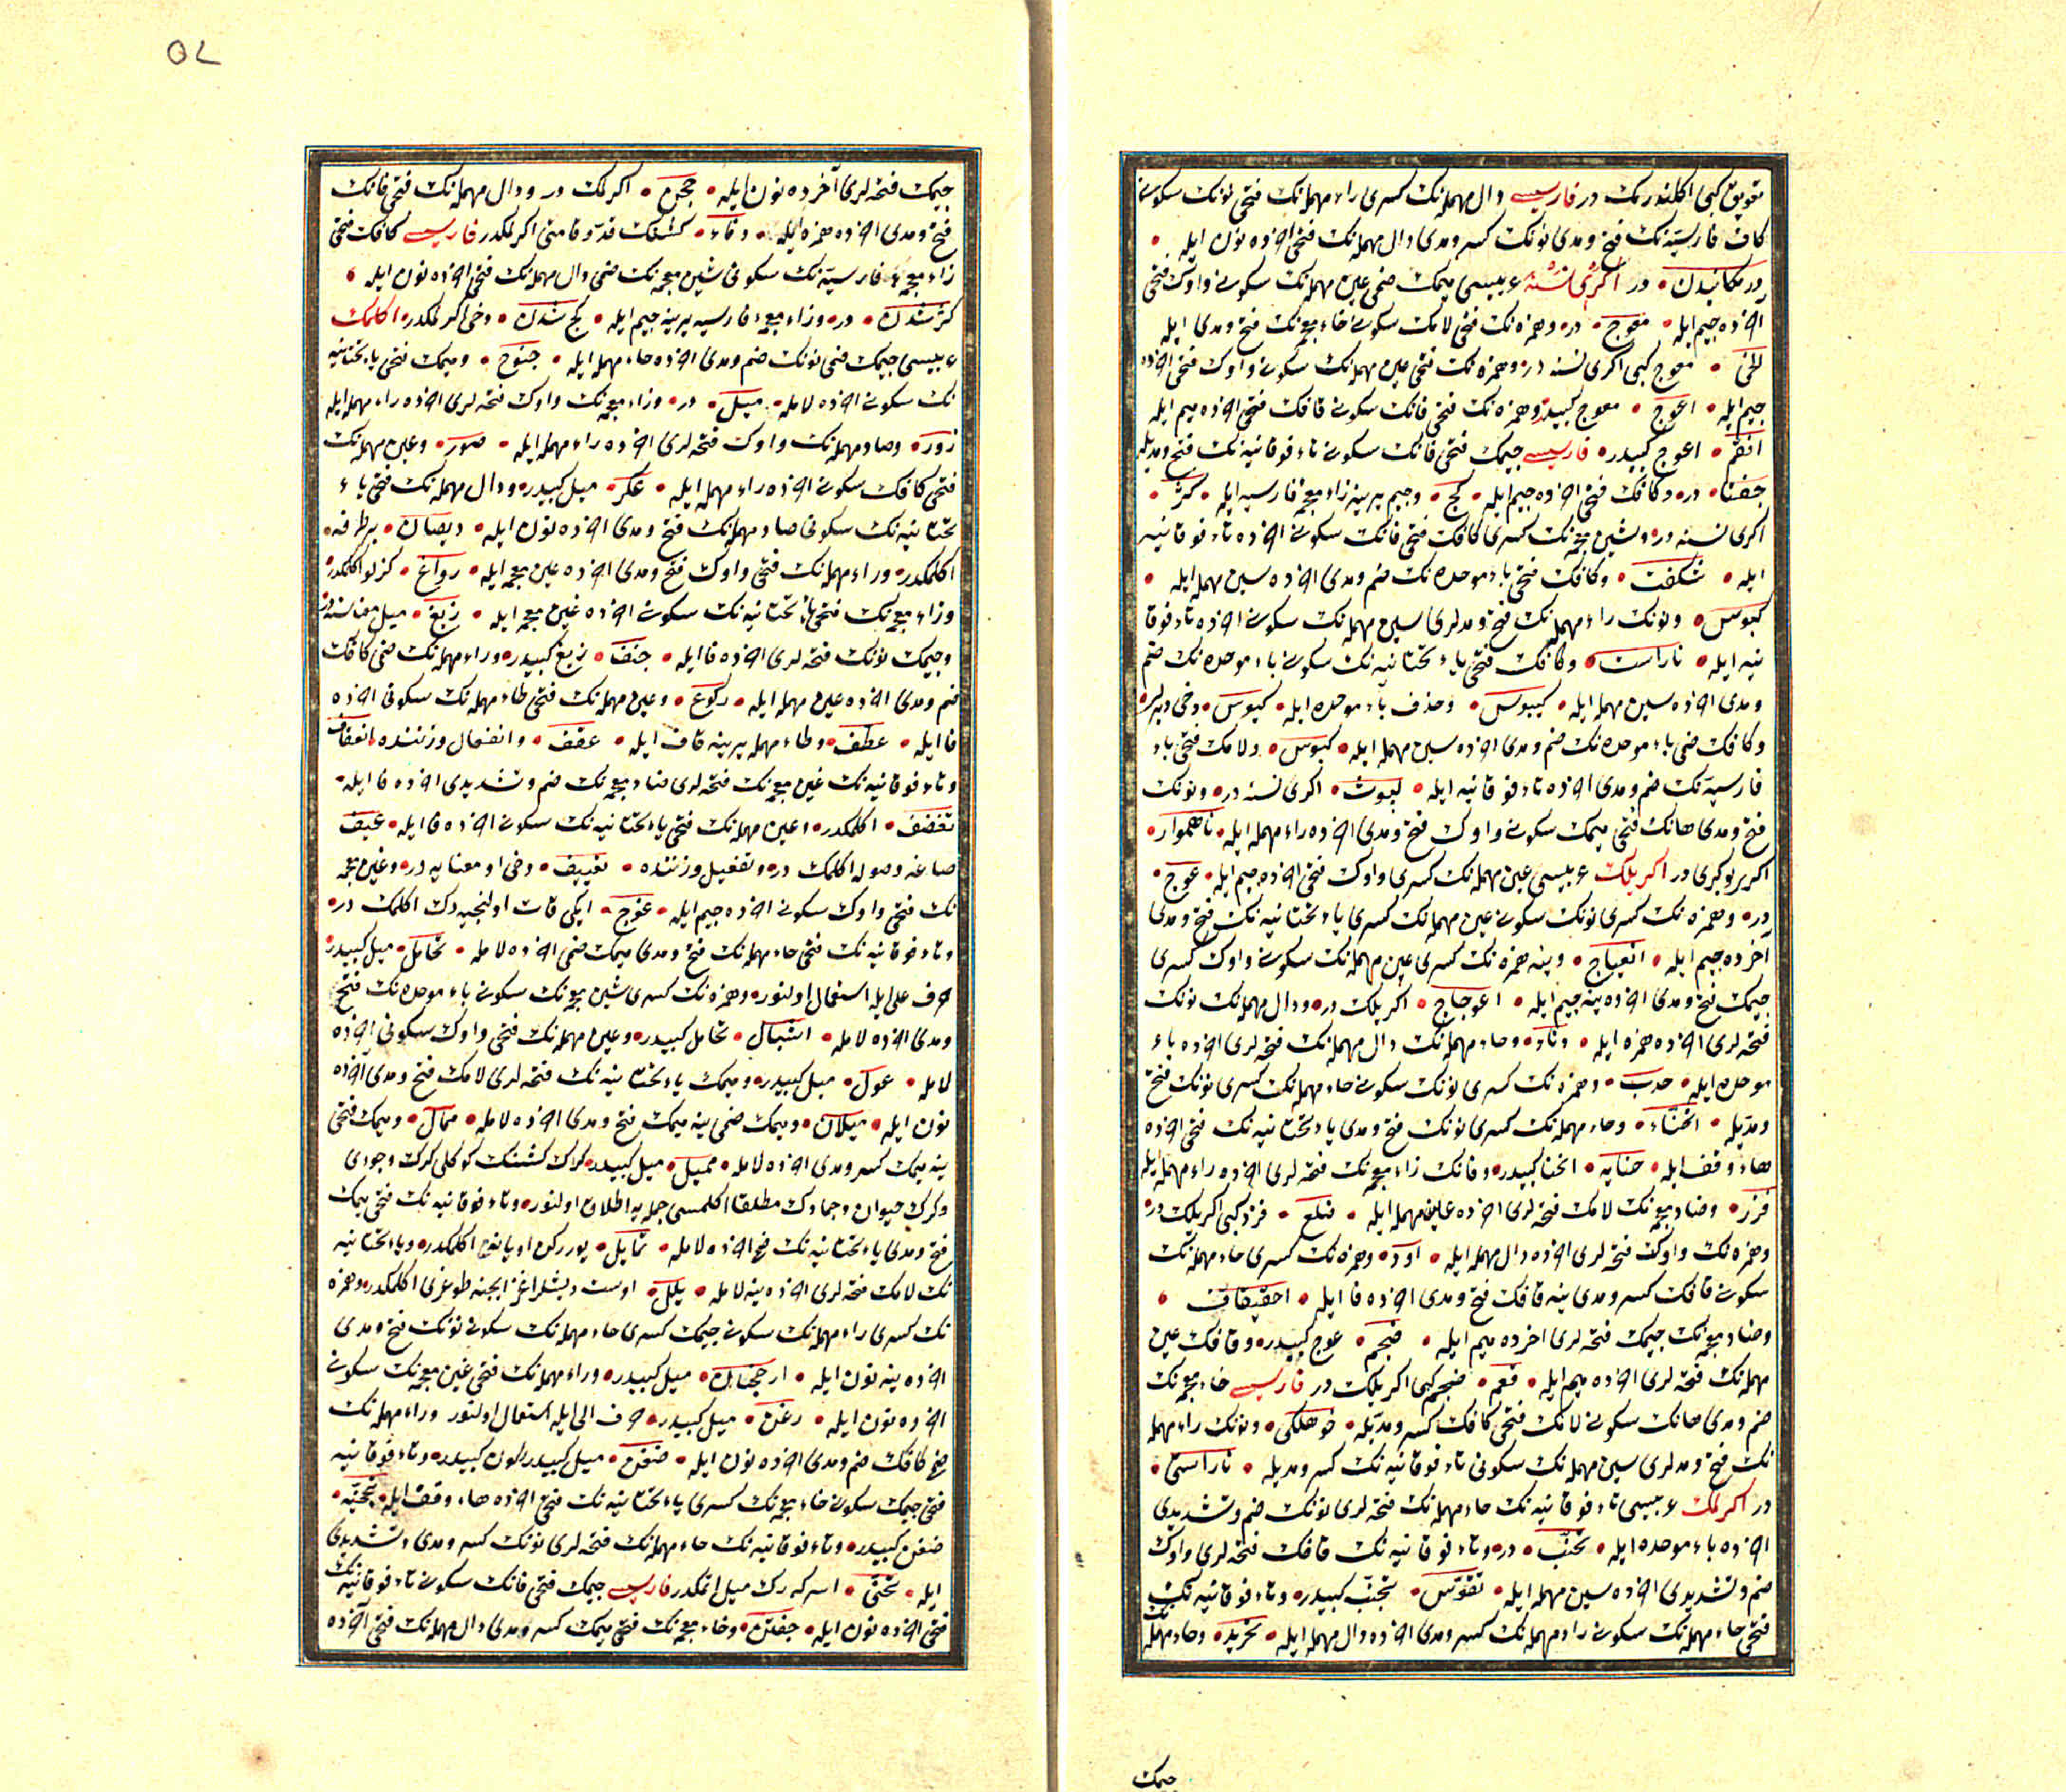 تعویق کبی اکلندرمک در فارسیسی دال مهمله‌نک کسری راء مهمله‌نک فتحی نونک سکونی
کاف فارسیه‌نک فتح ومدی نونک کسر ومدی دال مهمله‌نک فتحی اخرده نون ایله •
درنکانیدن • در اکری نسنه عربیسی میمک ضمی عین مهمله‌نک سکونی واوک فتحی
اخرده جیم ایله • معوج • در • وهمزه‌نک فتحی لامک سکونی خاء معجمه‌نک فتح ومدی ایله
الخی • معوج کبی اکری نسنه در • وهمزه‌نک فتحی عین مهمله‌نک سکونی واوک فتحی اخرده
جیم ایله • اعوج • معوج کبیدر • وهمزه‌نک فتحی فانک سکونی قافک فتحی اخرده میم ایله
افقم • اعوج کبیدر • فارسیسی جیمک فتحی فانک سکونی تاء فوقانیه‌نک فتح ومدیله
جفتا • در • وکافک فتحی اخرده جیم ایله • کج • وجیم یرینه زاء معجمهٔ فارسیه ایله • کژ •
اکری نسنه در • وشین معجمه‌نک کسری کافک فتحی فانک سکونی اخرده تاء فوقانیه
ایله • شکفت • وکافک فتحی باء موحده‌نک ضم ومدی اخرده سین مهمله ایله •
کبوس • ونونک راء مهمله‌نک فتح ومدلری سین مهمله‌نک سکونی اخرده تاء فوقا
نیه ایله • ناراست • وکافک فتحی یاء تحتانیه‌نک سکونی باء موحده‌نک ضم
ومدی اخرده سین مهمله ایله • کیبوس • وحذف باء موحده ایله • کیوس • دخی دیرلر •
وکافک ضمی باء موحده‌نک ضم ومدی اخرده سین مهمله ایله • کبوس • ولامک فتحی باء
فارسیه‌نک ضم ومدی اخرده تاء فوقانیه ایله • لپوت • اکری نسنه در • ونونک
فتح ومدی هانک فتحی میمک سکونی واوک فتح ومدی اخرده راء مهمله ایله • ناهموار •
در اکریلک عربیسی عین مهمله‌نک کسری واوک فتحی اخرده جیم ایله • عوج •
در • وهمزه‌نک کسری نونک سکونی عین مهمله‌نک کسری یاء تحتانیه‌نک فتح ومدی
آخرده جیم ایله • انعیاج • وینه همزه‌نک کسری عین مهمله‌نک سکونی واوک کسری
جیمک فتح ومدی اخرده ینه جیم ایله • اعوجاج • اکریلک در • ودال مهمله‌نک نونک
فتحه لری اخرده همزه ایله • دناء • وحاء مهمله‌نک دال مهمله‌نک فتحه لری اخرده باء
موحده ایله • حدب • وهمزه‌نک کسری نونک سکونی حاء مهمله‌نک کسری نونک فتح
ومدیله • انحناء • وحاء مهمله‌نک کسری نونک فتح ومدی یاء تحتانیه‌نک فتحی اخرده
هاء وقف ایله • حنایه • انحنا کبیدر • وفانک زاء معجمه‌نک فتحه لری اخرده راء مهمله ایله
فزر • وضاد معجمه‌نک لامک فتحه لری اخرده عین مهمله ایله • ضلع • فزر کبی اکریلک در •
وهمزه‌نک واوک فتحه لری اخرده دال مهمله ایله • اود • وهمزه‌نک کسری حاء مهمله‌نک
سکونی قافک کسر ومدی ینه قافک فتح ومدی اخرده فا ایله • احقیقاف •
وضاد معجمه‌نک جیمک فتحه لری اخرده میم ایله • ضجم • عوج کبیدر • وقافک عین
مهمله‌نک فتحه لری اخرده میم ایله • قعم • ضجم کبی اکریلک در فارسیسی خاء معجمه‌نک
ضم ومدی هانک سکونی لامک فتحی کافک کسر ومدیله • خوهلکی • ونونک راء مهمله
نک فتح ومدلری سین مهمله‌نک سکونی تاء فوقانیه‌نک کسر ومدیله • ناراستی •
در اکرلمک عربیسی تاء فوقانیه‌نک حاء مهمله‌نک فتحه لری نونک ضم وتشدیدی
اخرده باء موحده ایله • تحنب • در • وتاء فوقانیه‌نک قافک فتحه لری واوک
ضم وتشدیدی اخرده سین مهمله ایله • تقوس • تحنب کبیدر • وتاء فوقانیه‌نک
فتحی حاء مهمله‌نک سکونی راء مهمله‌نک کسر ومدی اخرده دال مهمله ایله • تحرید • وحاء مهمله‌نک
جیمک
٥٤
جیمک فتحه لری آخرده نون ایله • حجن • اکرلمک در ودال مهمله‌نک فتحی فانک
فتح ومدی اخرده همزه ایله • دفاء • کشینک قد وقامتی اکرلمکدر فارسیسی کافک فتحی
زاء معجمهٔ فارسیه‌نک سکونی شین معجمه‌نک ضمی دال مهمله‌نک فتحی اخرده نون ایله •
کژشدن • در • وزاء معجمهٔ فارسیه یرینه جیم ایله • کج شدن • دخی اکرلمکدر • اکلمک
عربیسی جیمک ضمی نونک ضم ومدی اخرده حاء مهمله ایله • جنوح • ومیمک فتحی یاء تحتانیه
نک سکونی اخرده لامله • میل • در • وزاء معجمه‌نک واوک فتحه لری اخرده راء مهمله ایله
زور • وصاد مهمله‌نک واوک فتحه لری اخرده راء مهمله ایله • صور • وعین مهمله‌نک
فتحی کافک سکونی اخرده راء مهمله ایله • عکر • میل کبیدر • ودال مهمله‌نک فتحی یاء
تحتانیه‌نک سکونی صاد مهمله‌نک فتح ومدی اخرده نون ایله • دیصان • بر طرفه
اکلمکدر • وراء مهمله‌نک فتحی واوک فتح ومدی اخرده غین معجمه ایله • رواغ • کزلو اکلمکدر •
وزاء معجمه‌نک فتحی یاء تحتانیه‌نک سکونی اخرده غین معجمه ایله • زیغ • میل معناسنه در
وجیمک نونک فتحه لری اخرده فا ایله • جنف • زیغ کبیدر • وراء مهمله‌نک ضمی کافک
ضم ومدی اخرده عین مهمله ایله • رکوع • وعین مهمله‌نک فتحی طاء مهمله‌نک سکونی اخرده
فا ایله • عطف • وطاء مهمله یرینه قاف ایله • عقف • وانفعال وزننده انعقاف
وتاء فوقانیه‌نک غین معجمه‌نک فتحه لری ضاد معجمه‌نک ضم وتشدیدی اخرده فا ایله •
تغضف • اکلمکدر • وعین مهمله‌نک فتحی یاء تحتانیه‌نک سکونی اخرده فا ایله • عیف
صاغه وصوله اکلمک در • وتفعیل وزننده • تعییف • دخی او معنایه در • وغین معجمه
نک فتحی واوک سکونی اخرده جیم ایله • غوج • ایکی قات اولنجیه دک اکلمک در •
وتاء فوقانیه‌نک فتحی حاء مهمله‌نک فتح ومدی میمک ضمی اخرده لامله • تحامل • میل کبیدر
حرف علی ایله استعمال اولنور • وهمزه‌نک کسری شین معجمه‌نک سکونی باء موحده‌نک فتح
ومدی اخرده لامله • اشبال • تحامل کبیدر • وعین مهمله‌نک فتحی واوک سکونی اخرده
لامله • عول • میل کبیدر • ومیمک یاء تحتانیه‌نک فتحه لری لامک فتح ومدی آخرده
نون ایله • میلان • ومیمک ضمی ینه میمک فتح ومدی اخرده لامله • ممال • ومیمک فتحی
ینه میمک کسر ومدی اخرده لامله • ممیل • میل کبیدر • کرک کشینک کوکلی کرک وجودی
وکرک حیوان وجمادک مطلقا اکلمسی جمله‌یه اطلاق اولنور • وتاء فوقانیه‌نک فتحی میمک
فتح ومدی یاء تحتانیه‌نک ضمی اخرده لامله • تمایل • یوررکن او یانه اکلمکدر • ویاء تحتانیه
نک لامک فتحه لری اخرده ینه لامله • یلل • اوست دیشلر اغز ایچنه طوغری اکلمکدر • وهمزه
نک کسری راء مهمله‌نک سکونی جیمک کسری حاء مهمله‌نک سکونی نونک فتح ومدی
اخرده ینه نون ایله • ارجحنان • میل کبیدر • وراء مهمله‌نک فتحی غین معجمه‌نک سکونی
اخرده نون ایله • رغن • میل کبیدر • حرف الی ایله استعمال اولنور وراء مهمله‌نک
ضمی کافک ضم ومدی اخرده نون ایله • ضغن • میل کبیدر رکون کبیدر • وتاء فوقانیه
فتحی جیمک سکونی خاء معجمه‌نک کسری یاء تحتانیه‌نک فتحی اخرده هاء وقف ایله • تجخیه •
ضغن کبیدر • وتاء فوقانیه‌نک حاء مهمله‌نک فتحه لری نونک کسر ومدی وتشدیدی
ایله • تحنی • میل اتمکدر فارسیسی جیمک فتحی فانک سکونی تاء فوقانیه‌نک
فتحی اخرده نون ایله • جفتن • وخاء معجمه‌نک فتحی میمک کسر ومدی دال مهمله‌نک فتحی آخرده